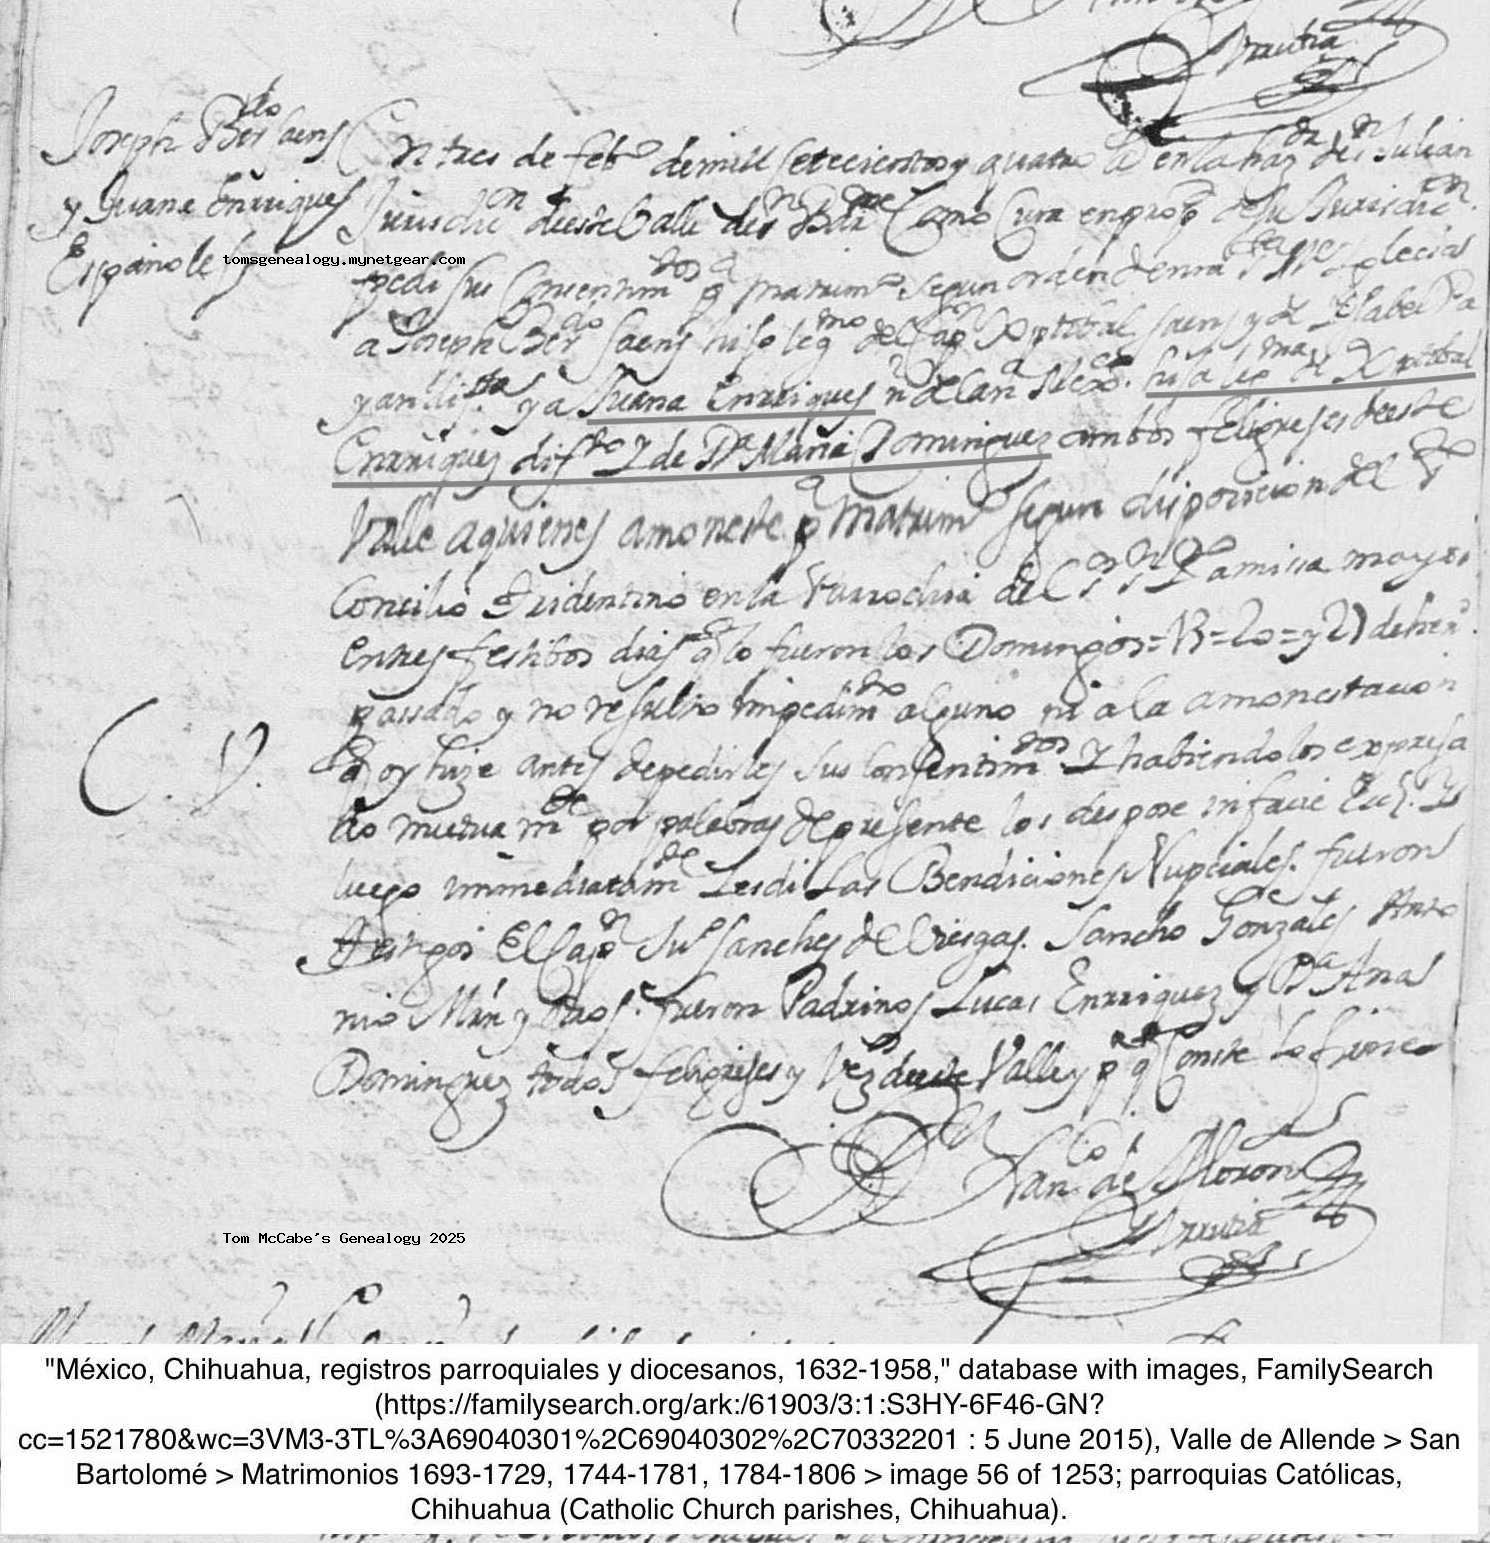 Urrutia
Joseph Ber.do Saens
y Juana Enrriques
Españoles
En tres de feb.o de mill setecientos y quatro a.s en la haz.da de S.n Julian
Jurisdic.on deeste Valle de S.n Bar.me Como Cura en prop.d de su Jurisdic.on
pedi sus Consentim.tos p.a matrim.o segun orden de nra S.ta M.e Yglecia
a Joseph Ber.do Saens hijo leg.mo del Cap.n Xptobal Saens y de Ysabel
y a Juana Enrriques hija leg.ma de Xptobal
Enrriques dif.to y de D.a Maria Dominguez ambos feligreses deeste
Valle a quienes amoneste p.a matrim.o segun disposicion del S.to
Concilio Tridentino en la Parrochia de missa mayor
entres festibos dias q.e lo fueron los Domingos = 13 = 20 = y 27 de hen.o
passado y no resulto impedim.to alguno ni a la amonestacion
q.e oy hize antes depedirles sus Consentim.tos Y habiendolos expresa
do mutuam.te por palabras de presente los despose in facie Eccl. Y
luego immediatam.te les di las Bendiciones Nupciales. fueron
testigos El Cap.n Ju.o Sanches de Sancho Gonzales Anto
nio Mrn y otros. fueron Padrinos Lucas Enrriquez y D.a Ana
Dominguez todos feligreses y Vez.os deeste Valle y p.a q.e Conste lo firme
C. V.
Fran.co de Moron
Urrutia
tomsgenealogy.mynetgear.com
Tom McCabe's Genealogy 2025
"México, Chihuahua, registros parroquiales y diocesanos, 1632-1958," database with images, FamilySearch
(https://familysearch.org/ark:/61903/3:1:S3HY-6F46-GN?
cc=1521780&wc=3VM3-3TL%3A69040301%2C69040302%2C70332201 : 5 June 2015), Valle de Allende > San
Bartolomé > Matrimonios 1693-1729, 1744-1781, 1784-1806 > image 56 of 1253; parroquias Católicas,
Chihuahua (Catholic Church parishes, Chihuahua).